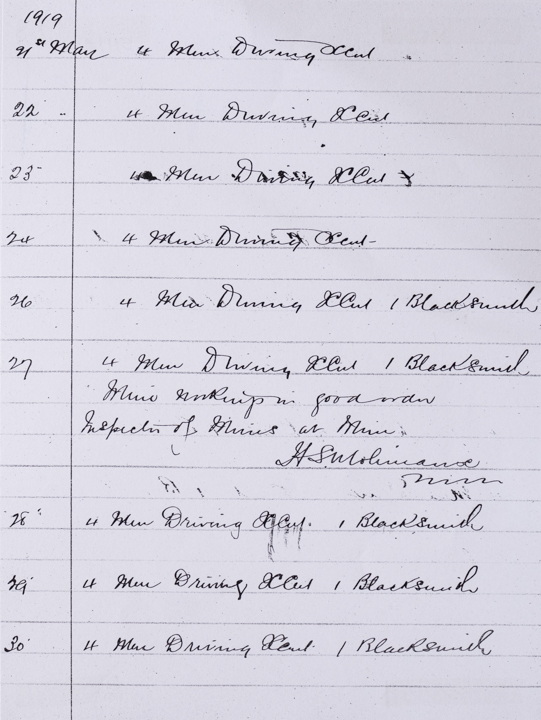 1919
21st May 4 Men Driving XCut
22 " 4 Men Driving XCut
23 4 Men Driving XCut
24 4 Men Driving XCut
26 4 Men Driving XCut 1 Blacksmith
27 4 Men Driving XCut 1 Blacksmith
Mine workings in good order
Inspector of Mines at Mine
H S Molineaux
28 " 4 Men Driving XCut. 1 Blacksmith
29 4 Men Driving XCut 1 Blacksmith
30 4 Men Driving XCut 1 Blacksmith